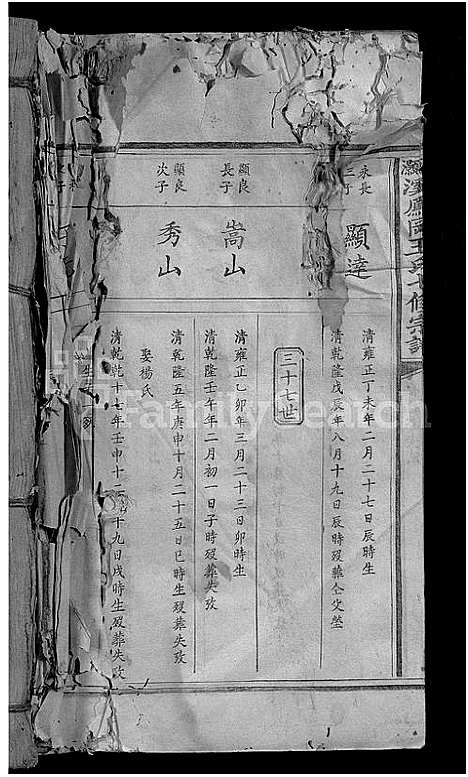 溪
王氏七修宗譜
永長
三子
顯達
清雍正丁未年二月二十七日辰時生
清乾隆戊辰年八月十九日辰時歿葬仝父塋
三十七世
顯良
長子
嵩山
清雍正乙卯年三月二十三日卯時生
清乾隆壬午年二月初一日子時歿葬失攷
顯良
次子
秀山
清乾隆五年庚申十月二十五日巳時生歿葬失攷
娶楊氏
清乾乾十七年壬申十二 十九日戌時生歿葬失攷
次子
FamilySearch